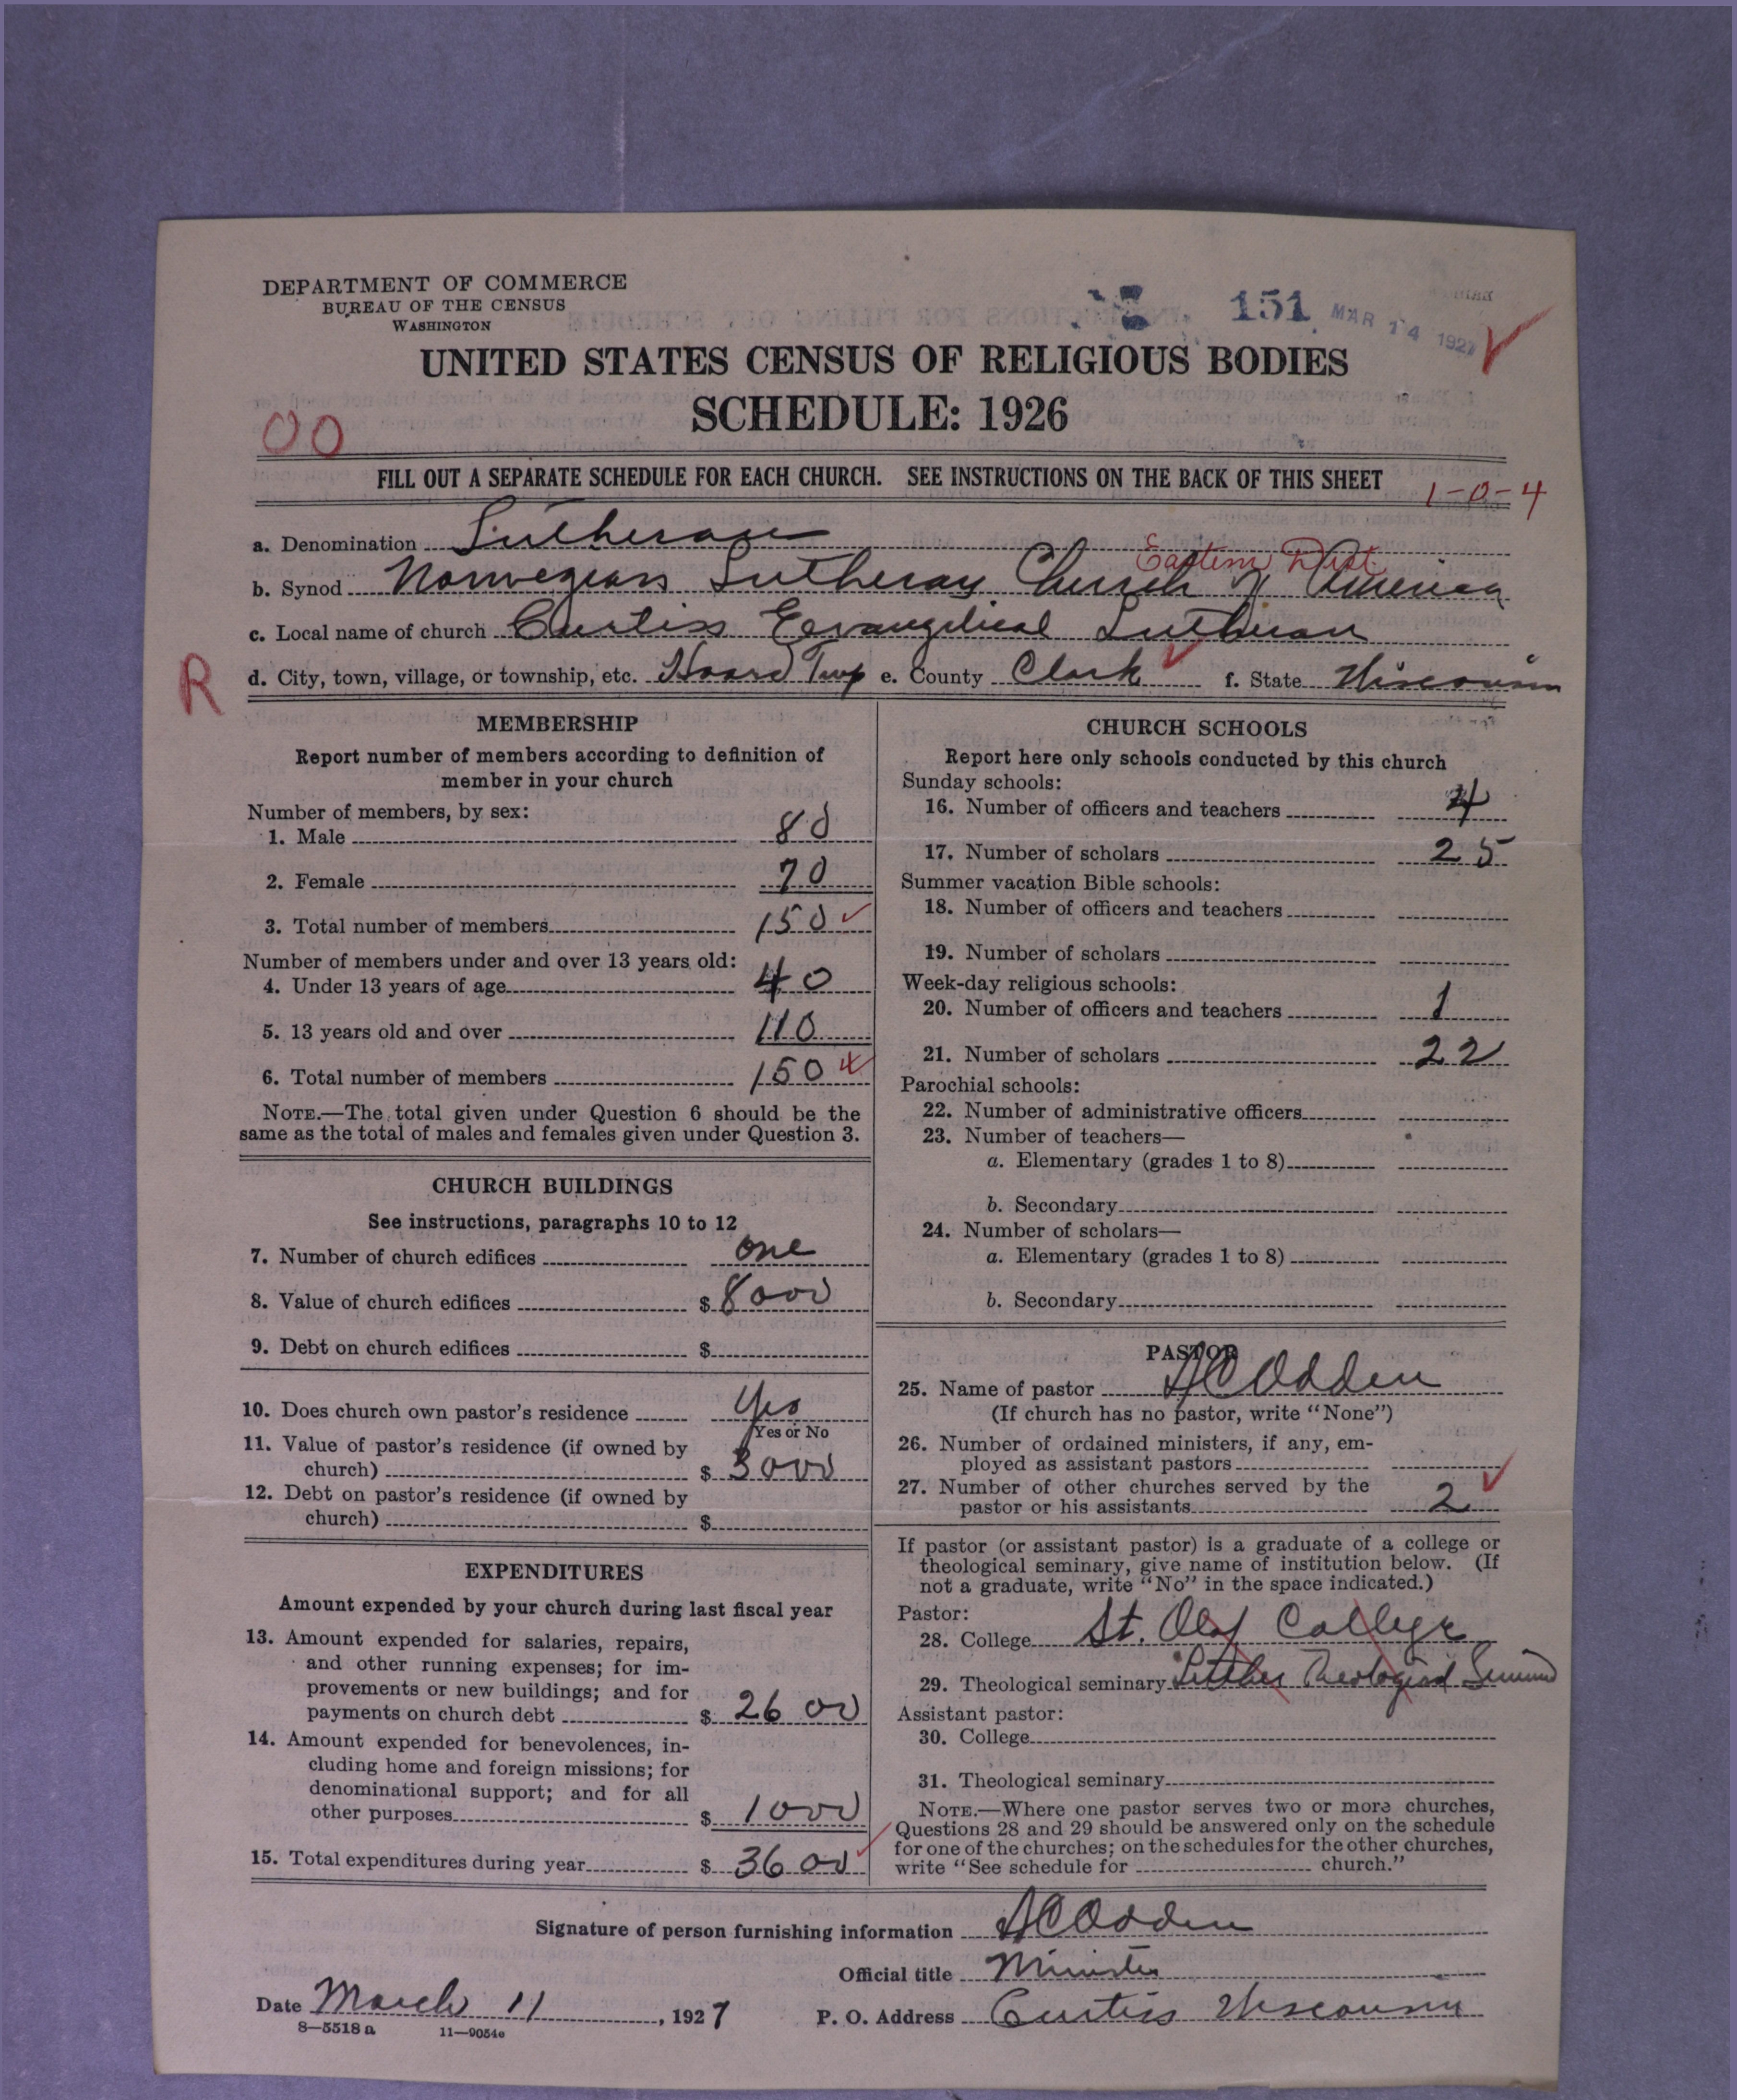 DEPARTMENT OF COMMERCE
BUREAU OF THE CENSUS
WASHINGTON
151 MAR 14 1927
UNITED STATES CENSUS OF RELIGIOUS BODIES
SCHEDULE: 1926
00
FILL OUT A SEPARATE SCHEDULE FOR EACH CHURCH. SEE INSTRUCTIONS ON THE BACK OF THIS SHEET
1-0-4
a. Denomination Lutheran
Eastern Dist
b. Synod Norwegian Lutheran Church of America
c. Local name of church Curtiss Evangelical Lutheran
R
d. City, town, village, or township, etc. Hoard Twp e. County Clark f. State Wisconsin
MEMBERSHIP
Report number of members according to definition of
member in your church
Number of members, by sex:
1. Male 80
2. Female 70
3. Total number of members 150
Number of members under and over 13 years old:
4. Under 13 years of age 40
5. 13 years old and over 110
6. Total number of members 150
NOTE.—The total given under Question 6 should be the
same as the total of males and females given under Question 3.
CHURCH BUILDINGS
See instructions, paragraphs 10 to 12
7. Number of church edifices one
8. Value of church edifices $ 8000
9. Debt on church edifices $
10. Does church own pastor's residence Yes
Yes or No
11. Value of pastor's residence (if owned by
church) $ 3000
12. Debt on pastor's residence (if owned by
church) $
EXPENDITURES
Amount expended by your church during last fiscal year
13. Amount expended for salaries, repairs,
and other running expenses; for im-
provements or new buildings; and for
payments on church debt $ 2600
14. Amount expended for benevolences, in-
cluding home and foreign missions; for
denominational support; and for all
other purposes $ 1000
15. Total expenditures during year $ 3600
CHURCH SCHOOLS
Report here only schools conducted by this church
Sunday schools:
16. Number of officers and teachers 4
17. Number of scholars 25
Summer vacation Bible schools:
18. Number of officers and teachers
19. Number of scholars
Week-day religious schools:
20. Number of officers and teachers 1
21. Number of scholars 22
Parochial schools:
22. Number of administrative officers
23. Number of teachers—
a. Elementary (grades 1 to 8)
b. Secondary
24. Number of scholars—
a. Elementary (grades 1 to 8)
b. Secondary
PASTOR
25. Name of pastor AC Odden
(If church has no pastor, write "None")
26. Number of ordained ministers, if any, em-
ployed as assistant pastors
27. Number of other churches served by the
pastor or his assistants 2
If pastor (or assistant pastor) is a graduate of a college or
theological seminary, give name of institution below. (If
not a graduate, write "No" in the space indicated.)
Pastor:
28. College St. Olaf College
29. Theological seminary Luther Theological
Assistant pastor:
30. College
31. Theological seminary
NOTE.—Where one pastor serves two or more churches,
Questions 28 and 29 should be answered only on the schedule
for one of the churches; on the schedules for the other churches,
write "See schedule for church."
Signature of person furnishing information AC Odden
Official title Minister
Date March 11, 1927 P. O. Address Curtiss Wisconsin
8—5518 a 11—9054c